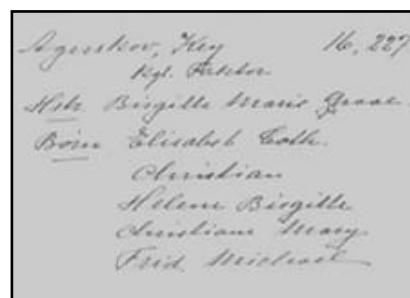 Agerskov, Key 16, 227
Kgl. Faktor
Birgitte Marie
Børn Elisabeth Cath.
Christian
Helene Birgitte
Christiane Mary
Frid. Michael